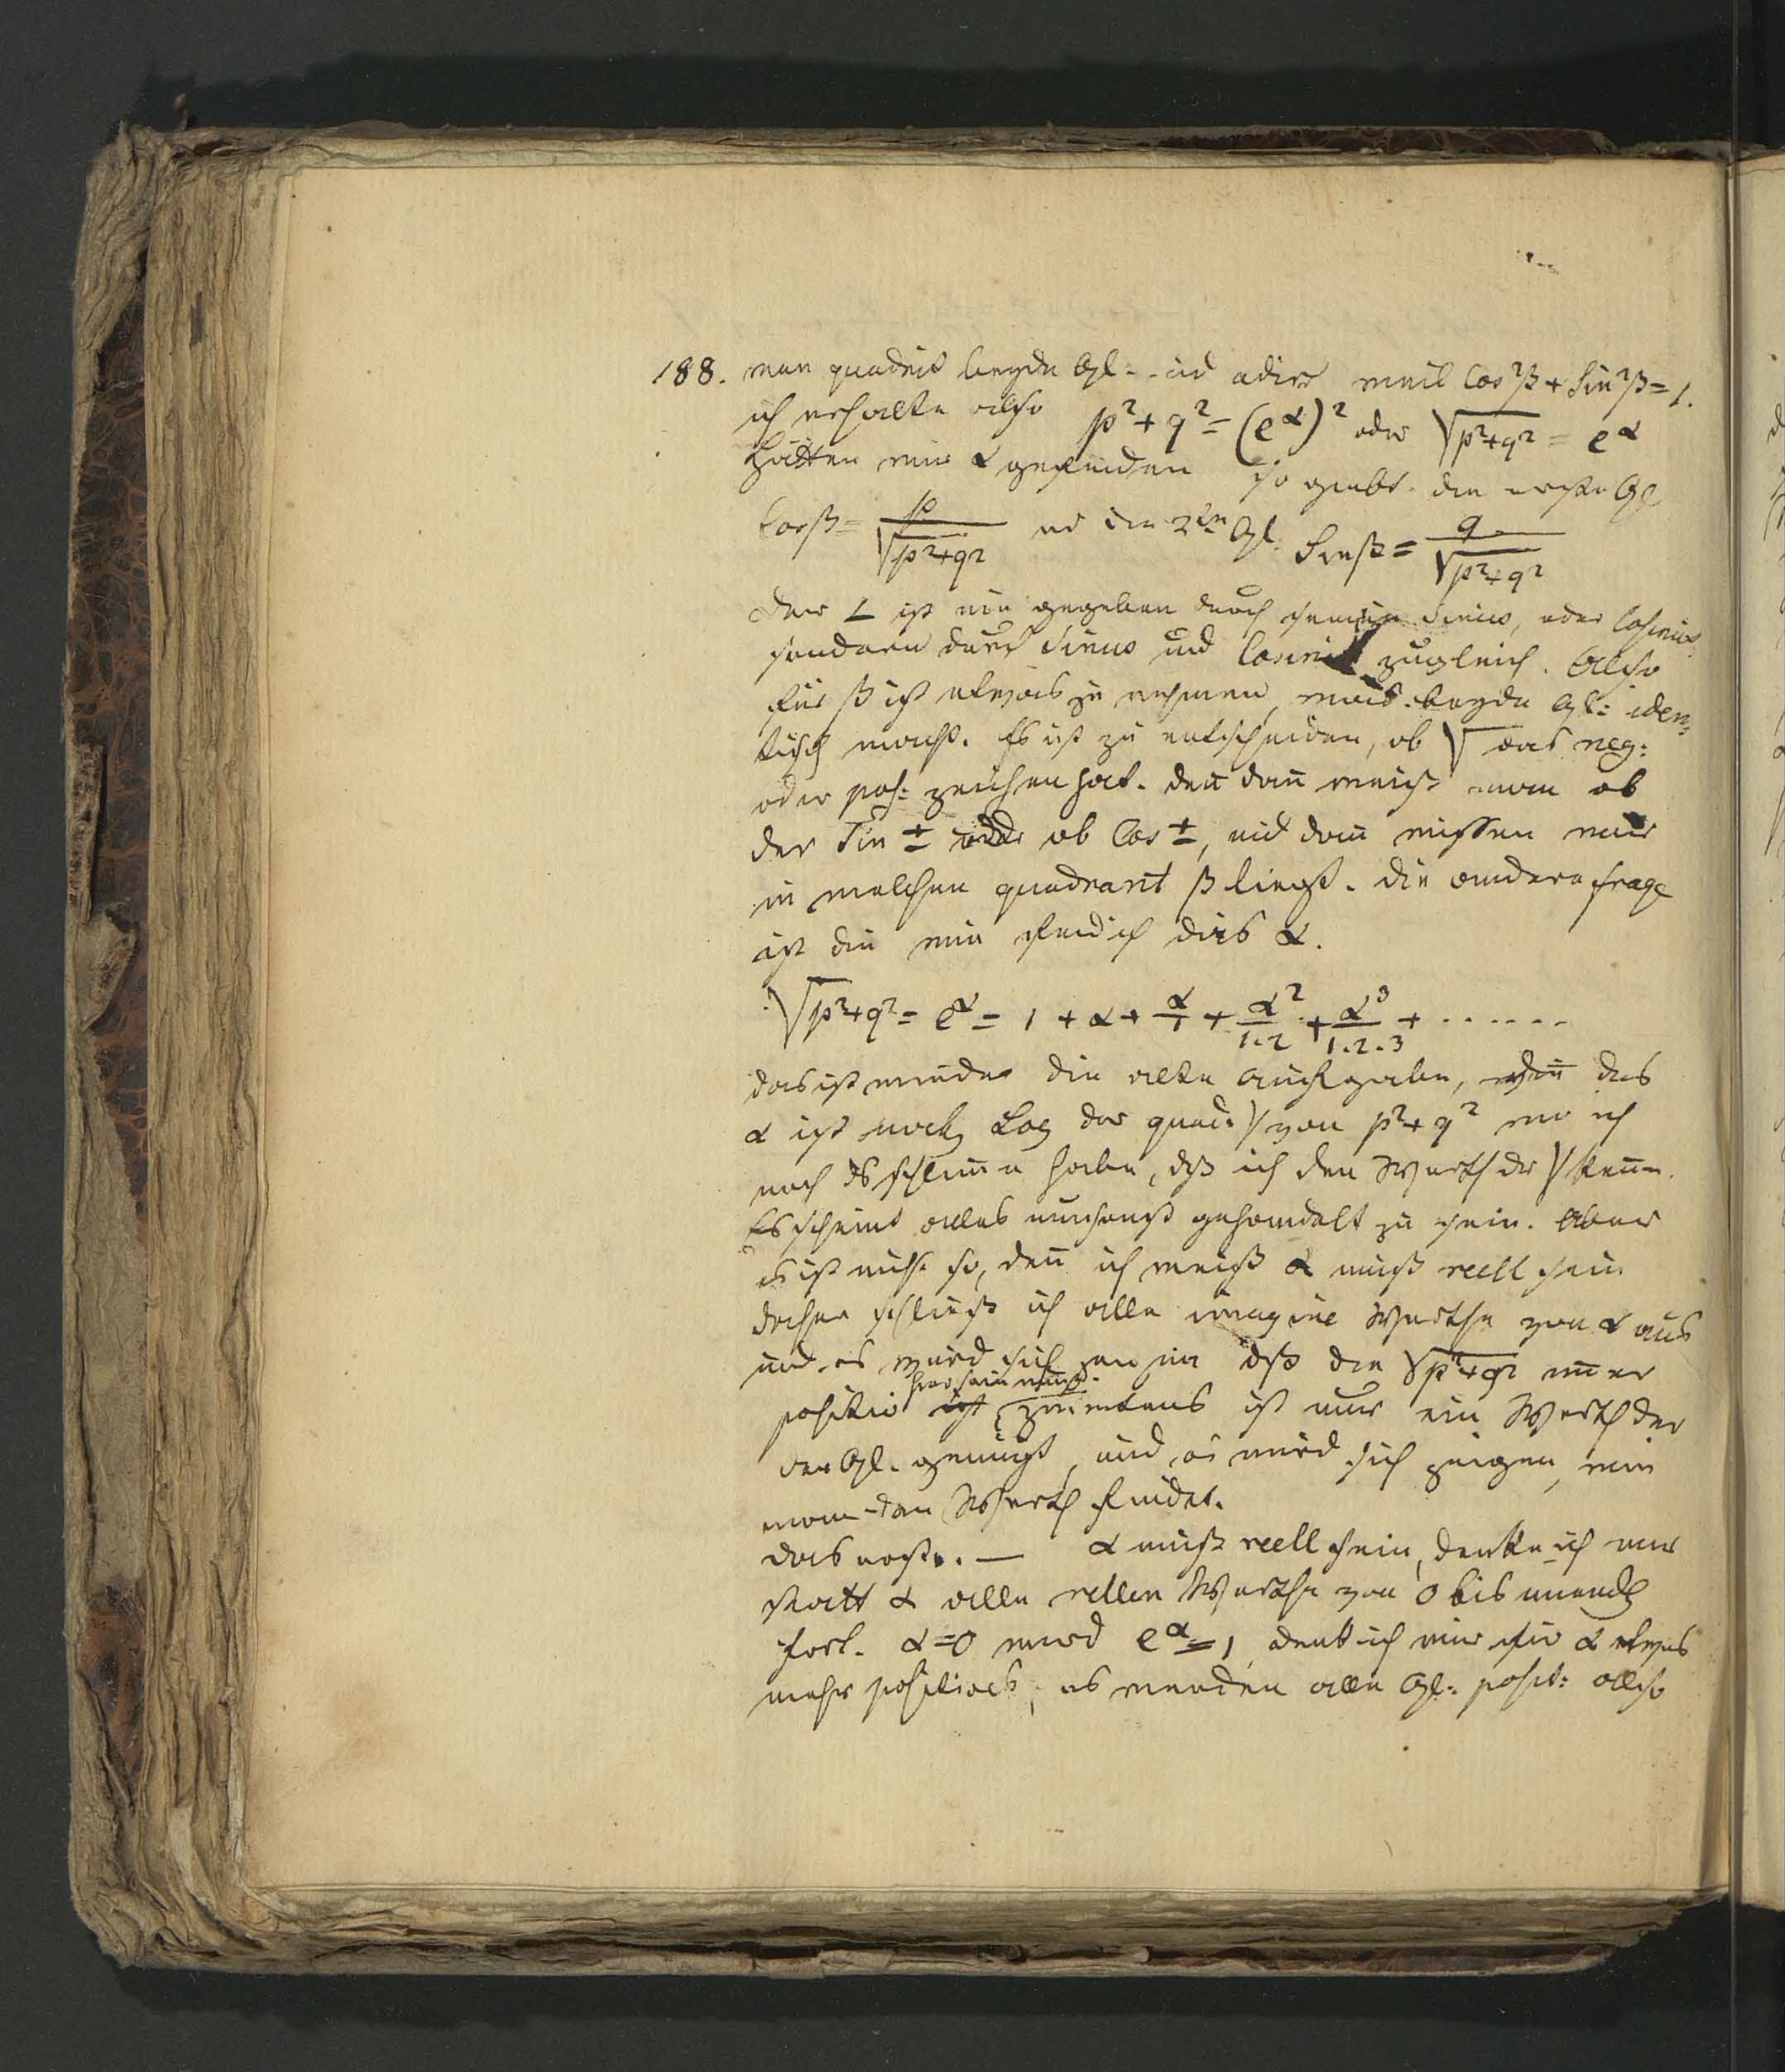 188. man quadrit beyde Gl: und adirt weil Cos²β + Sin²β = 1.
ich erhalte also p² + q² = (e^α)² oder √p²+q² = e^α
Hätten wir α gefunden so giebt die erste Gl
Cosβ = p/√p²+q² und die 2te Gl. Sinβ = q/√p²+q²
der ∠ ist nie gegeben durch seinen Sinus, oder Cosinus
sondern durch Sinus und Cosinus zugleich. Also
für β ist etwas zu nehmen, was beyde Gl: iden=
tisch macht. Es ist zu entscheiden, ob √ das neg:
oder pos: zeichen hat. den dan weiß man ob
der Sin ± oder ob Cos ±, und dan wissen wir
in welchen quadrant β liegt. die andere frage
ist die wie find ich dies α.
√p²+q² = e^α = 1 + α + α/1 + α²/1.2 + α³/1.2.3 + ......
das ist wieder die alte Aufgabe, den das
α ist noth Log der quad: √ von p²+q² wo ich
noch das schlime habe, dß ich den Werth der √ kenne.
Es scheint alles umsonst gehandelt zu sein. Aber
es ist nicht so, den ich weiß α muß reell sein
daher schließ ich alle imagine Werthe von α aus
und es wird sich zeigen dß die √p²+q² imer
hier sein muß.
positiv ist zweitens ist nur ein Werth der
der Gl. genügt, und es wird sich zeigen, wie
man den Werth findet.
das erste. — α muß reell sein, denke ich mir
statt α alle rellen Werthe von 0 bis unendl
fort. α=0 wird e^α = 1, denk ich mir für α etwas
mehr positives, es werden alle Gl: posit: also